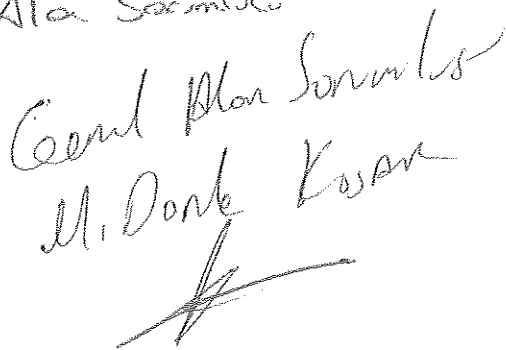 Ala Sorumlusu
Genel Alan Sorumlusu
M. Donle Kosar